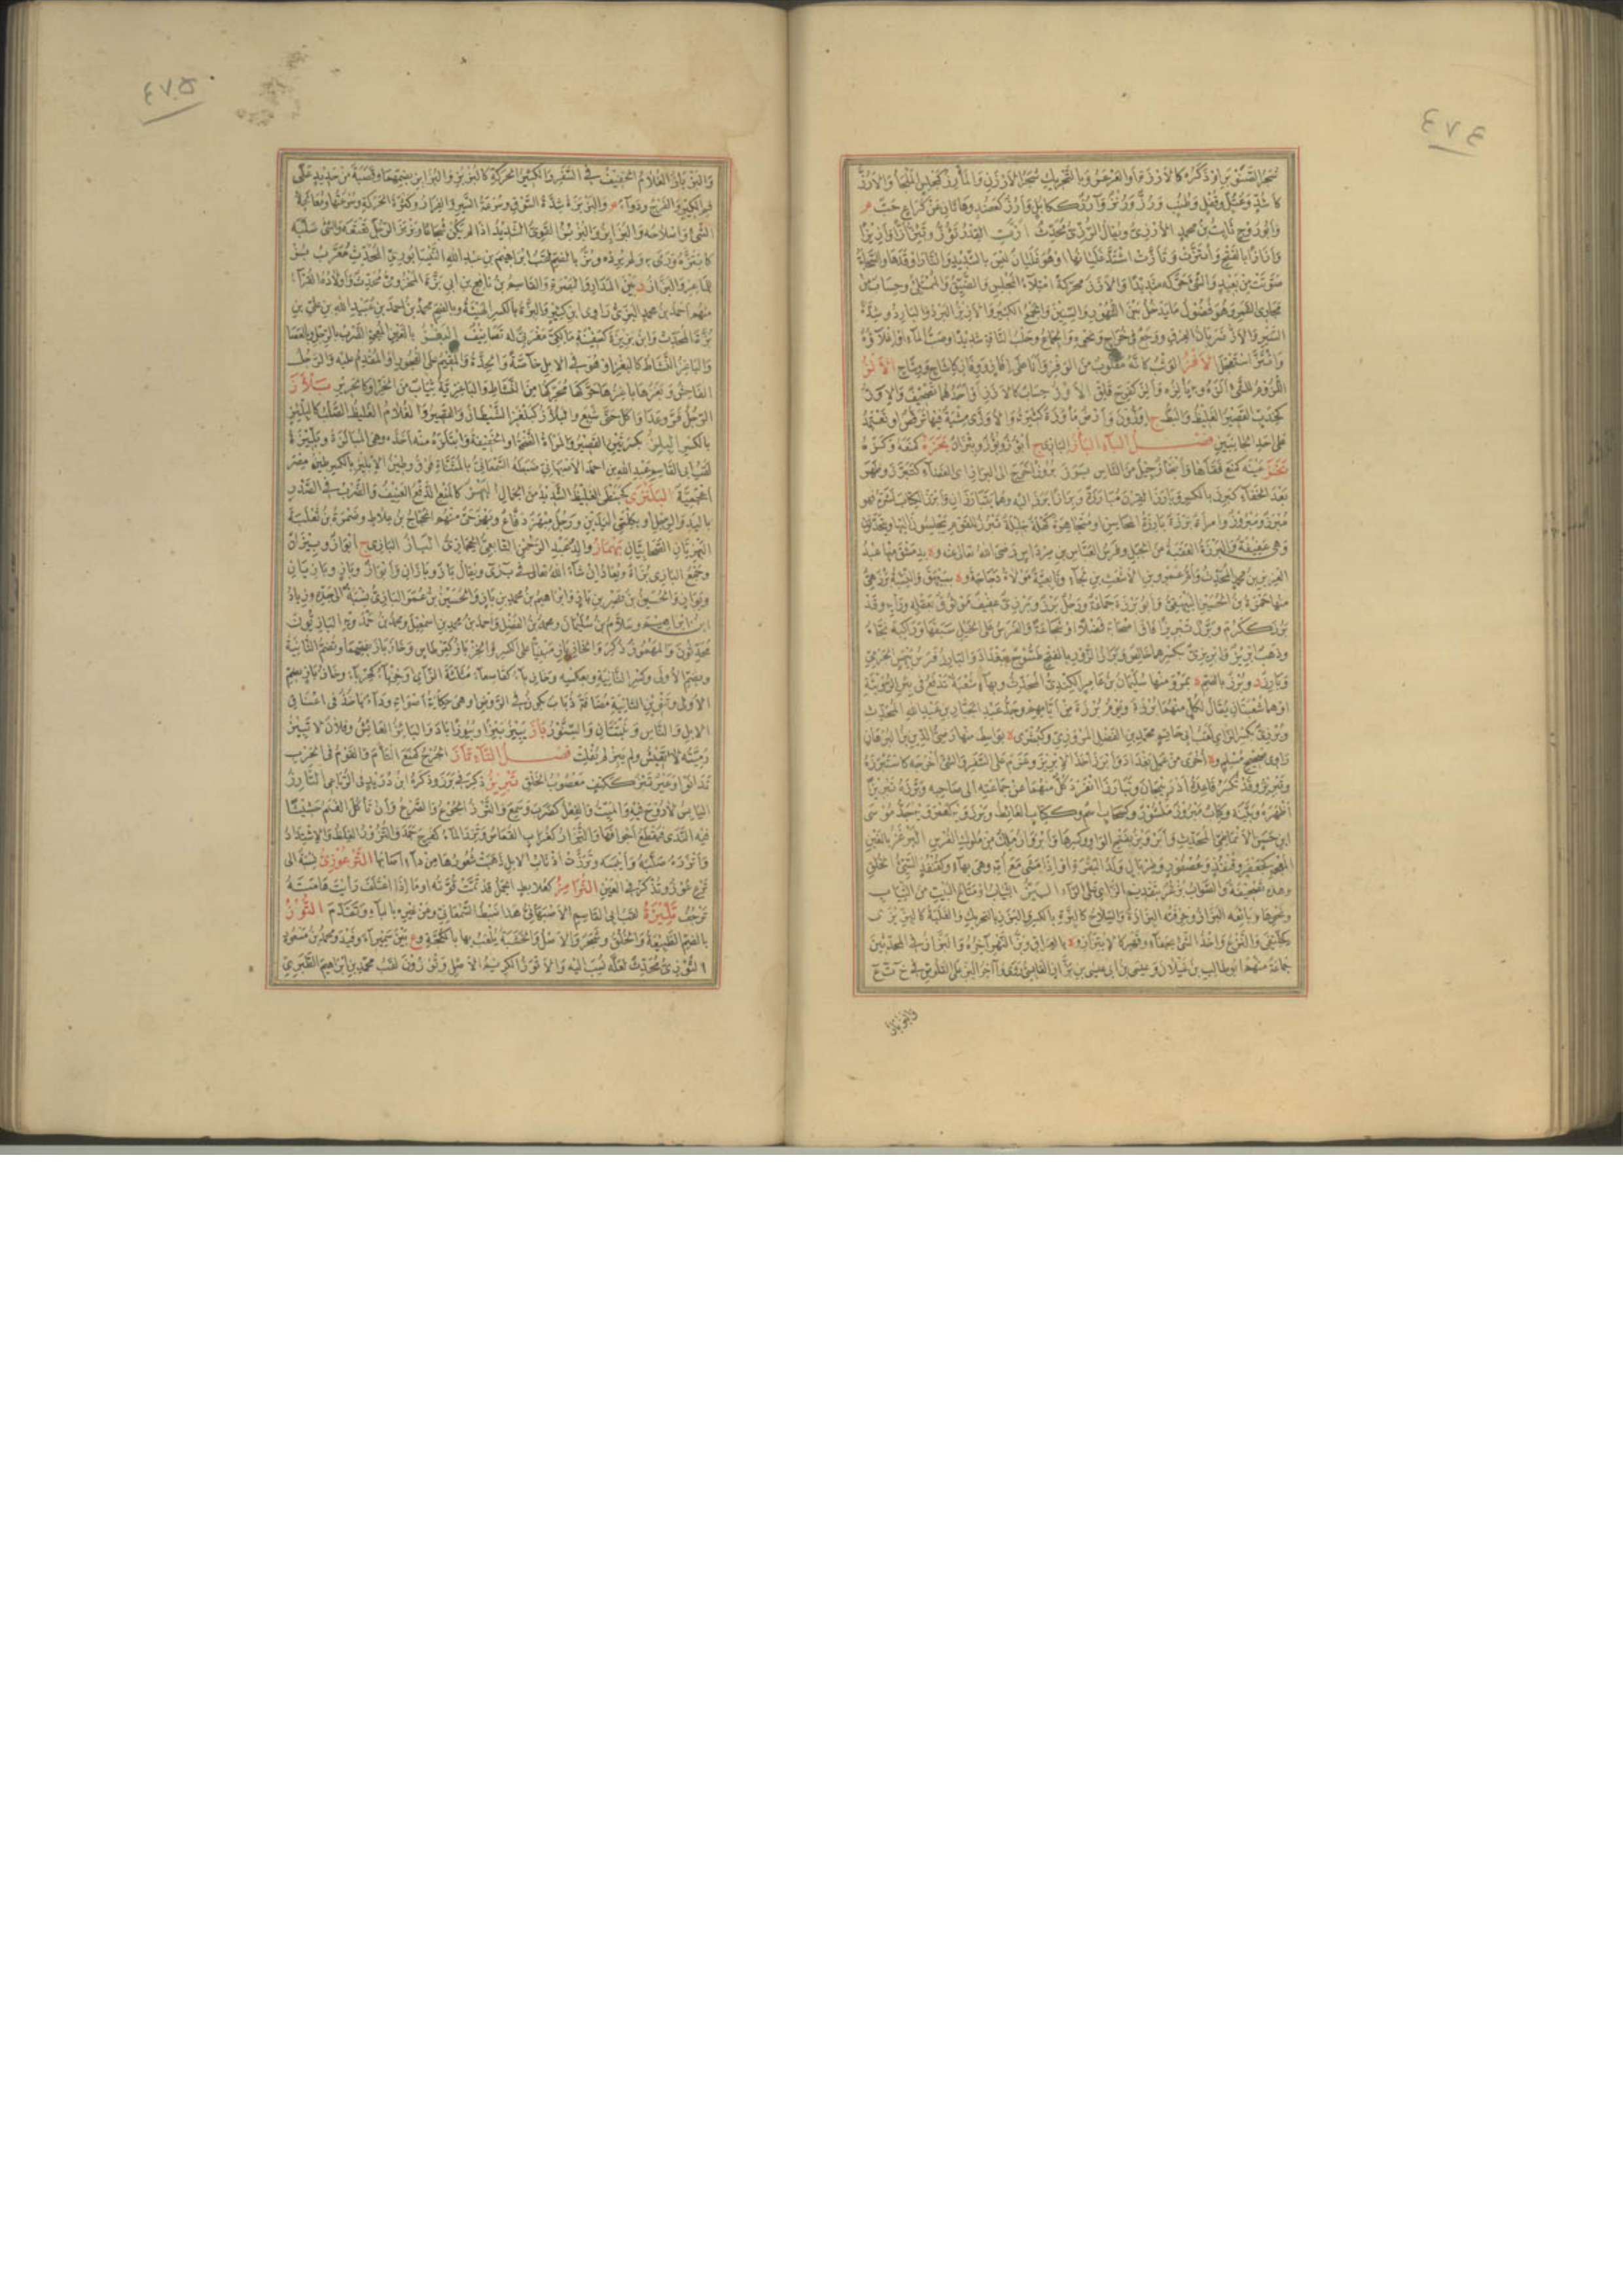 ٤٧٤
شجر الصنوبر او ذكره كالارزة او العرعر وبالتحريك شجر الارزن والمأرز كمجلس الملجأ والارز
كاشد وعتل وقفل وطنب ورز ورنز وآرز ككابل وارز كعضد وهاتان عن كراع حب م
وابو روح ثابت بن محمد الارزي ويقال الرزي محدث ازت القدر تؤز وتئز ازا وازيزا
وازازا بالفتح وائتزت وتأزت اشتد غليانها او هو غليان ليس بالشديد والنار اوقدها والسحابة
صوتت من بعيد والشئ حركه شديدا والازز محركة امتلاء المجلس والضيق والممتلئ وحساب من
مجاري القمر وهو فضول ما يدخل بين الشهور والسنين والجمع الكثير والازيز البرد والبارد وشدة
السير والاز ضربان العرق ووجع في خراج ونحوه والجماع وحلب الناقة شديدا وصب الماء واغلاؤه
وائتز استعجل الافز الوثب كانه مقلوب من الوفز وانا على افاز ووفاز كاشاح ووشاح الالز
اللزوم للشئ الزه به يألزه والز كفرح قلق الاوز حساب كالازز او احدهما تصحيف والاوز
كخدب القصير الغليظ والبط ج اوزون وارض مأوزة كثيرته والاوزى مشية فيها ترقص او تعتمد
على احد الجانبين فصل الباء البأز البازي ج ابؤز وبؤوز وبئزان بحزه كمنعه وكزه
بخز عينه كمنع فقأها وابخاز جيل من الناس برز بروزا خرج الى البراز اي الفضاء كتبرز وظهر
بعد الخفاء كبرز بالكسر وبارز القرن مبارزة وبرازا برز اليه وهما يتبارزان وابرز الكتاب نشره فهو
مبرز ومبروز وامرأة برزة بارزة المحاسن او متجاهرة كهلة جليلة تبرز للقوم يجلسون اليها ويتحدثون
وهي عفيفة والبرزة العقبة من الجبل وفرس العباس بن مرداس رضي الله تعالى عنه وة بدمشق منها عبد
العزيز بن محمد المحدث وام عمرو بن الاشعث بن لجاء وتابعية مولاة دجاجة وة ببيهق والنسبة برزهي
منها حمزة بن الحسين البيهقي وابو برزة جماعة ورجل برز وبرزي عفيف موثوق بعقله ورايه وقد
برز ككرم وبرز تبريزا فاق اصحابه فضلا او شجاعة والفرس على الخيل سبقها وراكبه نجاه
وذهب ابريز وابريزي بكسرهما خالص وبراز الروز بالفتح طسوج ببغداد والبارز فرس بيهس الجرمي
وبارز د وبرز بالضم ة بمرو منها سليمان بن عامر الكندي المحدث وبهاء شعبة تدفع في بئر الرويثة
او هما شعبتان يقال لكل منهما برزة ويوم برزة من ايامهم وجد عبد الجبار بن عبد الله المحدث
وبرزي بكسر الزاي لقب ابي حاتم محمد بن الفضل المروزي وكبشرى ة بواسط منها رضي الدين بن البرهان
راوي صحيح مسلم وة اخرى من عمل بغداد وابرز اخذ الابريز وعزم على السفر والشئ اخرجه كاستبرزه
وتبريز وقد تكسر قاعدة اذربيجان وتبارزا انفرد كل منهما عن جماعته الى صاحبه وبرزه تبريزا
اظهره وبينه وكتاب مبروز منشور وكسحاب اسم وككتاب الغائط وبرزويه كعمرويه جد موسى
ابن حسن الانماطي المحدث وابرويز بفتح الواو وكسرها وابرواز ملك من ملوك الفرس البرغز بالغين
المعجمة كجعفر وقنفذ وعصفور وطربال ولد البقرة او اذا مشى مع امه وهي بهاء وكقنفذ السيئ الخلق
وهذه تصحيفة والصواب بزغر بتقديم الزاي على الراء البز الثياب او متاع البيت من الثياب
ونحوها وبائعه البزاز وحرفته البزازة والسلاح كالبزة بالكسر والبزز بالتحريك والغلبة كالبزيزى
كخليفى والنزع واخذ الشئ بجفاء وقهر كالابتزاز وة بالعراق وبز النهر آخره والبزاز في المحدثين
جماعة منهم ابو طالب بن غيلان وعيسى بن ابي عيسى بن بزاز القابسي روى وآخر البز على القلوص في خ ت ع
والبزباز
٤٧٥
والبزباز الغلام الخفيف في السفر والكثير الحركة كالبزبز والبزابز بضمهما وقصبة من حديد على
فم الكير والفرج ودواء م والبزبزة شدة السوق وسرعة السير والفرار وكثرة الحركة وسرعتها ومعالجة
الشئ واصلاحه والبزابز والبزبز القوي الشديد اذا لم يكن شجاعا وبزبز الرجل تعتعه والشئ سلبه
كابتزه ورمى به ولم يرده وبز بالضم لقب ابراهيم بن عبد الله النيسابوري المحدث معرب بز
للماعز والبزاز د بين المذار والبصرة والقاسم بن نافع بن ابي بزة المخزومي محدث واولاده القراء
منهم احمد بن محمد البزي راوي ابن كثير والبزة بالكسر الهيئة وبالضم محمد بن احمد بن عبيد الله بن علي بن
بزة المحدث وابن بزيزة كسفينة مالكي مغربي له تصانيف البغز بالغين المعجمة الضرب بالرجل وبالعصا
والباغز النشاط كالبغز او هو في الابل خاصة والحدة والمقيم على الفجور او المقدم عليه والرجل
الفاحش وبغزها باغزها حركها محركها من النشاط والباغزية ثياب من الخز او كالحرير بلأز
الرجل فر وعدا واكل حتى شبع والبلأز كبلعز الشيطان والقصير والغلام الغليظ الصلب كالبلئز
بالكسر البلز بكسرتين القصير والمرأة الضخمة او الخفيفة وابتلزه منه اخذه وهي المبالزة وبليزة
لقب ابي القاسم عبد الله بن احمد الاصبهاني ضبطه السمعاني بالمثناة فوق وطين الابليز بالكسر طين مصر
اعجمية البلنزى كحبنطى الغليظ الشديد من الجمال البهز كالمنع الدفع العنيف والضرب في الصدر
باليد والرجل او بكلتي اليدين ورجل مبهز دفاع وبهز حي منهم الحجاج بن علاط وضمرة بن ثعلبة
البهزيان الصحابيان بهماز والد عبد الرحمن التابعي الحجازي الباز البازي ج ابواز وبيزان
وجمع البازي بزاة ويعاد ان شاء الله تعالى في بزى ويقال باز وبازان وابواز وباز وبازيان
وبوازي والحسين بن نصر بن باز وابراهيم بن محمد بن باز والحسين بن عمر البازي نسبة الى جده وزياد
ابن ابراهيم وسلام بن سليمان ومحمد بن الفضل واحمد بن محمد بن اسمعيل ومحمد بن حمدويه البازيون
محدثون والمهموز ذكر والخاز باز مبنيا على الكسر والخزباز كقرطاس وخاز باز بفتحهما وتضم الثانية
وبضم الاولى وكسر الثانية وبعكسه وخازباء كقاصعاء مثلثة الزاي وخزباء كحرباء وخاز باز بضم
الاولى وتنوين الثانية مضافة ذباب يكون في الروض او هي حكاية اصواته وداء ياخذ في اعناق
الابل والناس ونبتتان والسنور باز يبيز بيزا وبيوزا باد والبائز العائش وفلان لا تبيز
رميته لا تعيش ولم يبز لم يفلت فصل التاء تأز الجرح كمنع التأم والقوم في الحرب
تدانوا وعير تئز ككتف معصوب الخلق تبريز ذكر في ب ر ز وذكره ابن دريد في الرباعي التارز
اليابس لا روح فيه والميت والفعل كضرب وسمع والترز الجوع والصرع وان تأكل الغنم حشيشا
فيه الندى فيقطع اجوافها والتراز كغراب القعاص وترز الماء كفرح جمد والتروز الغلظ والاشتداد
واترزه صلبه وايبسه وترزت اذناب الابل ذهبت شعورها من داء اصابها الترعوزي نسبة الى
ترع عوز وتذكر في العين الترامز كعلابط الجمل قد تمت قوته او ما اذا اعتلف رأيت هامته
ترجف تليزة لقب ابي القاسم الاصبهاني هذا ضبط السمعاني وعن غيره بالباء وتقدم التوز
بالضم الطبيعة والخلق وشجر والاصل والخشبة يلعب بها بالكجة وع بين سميراء وفيد ومحمد بن مسعود
التوزي محدث لعله نسب اليه والاتوز الكريم الاصل وتوزون لقب محمد بن ابراهيم الطبري